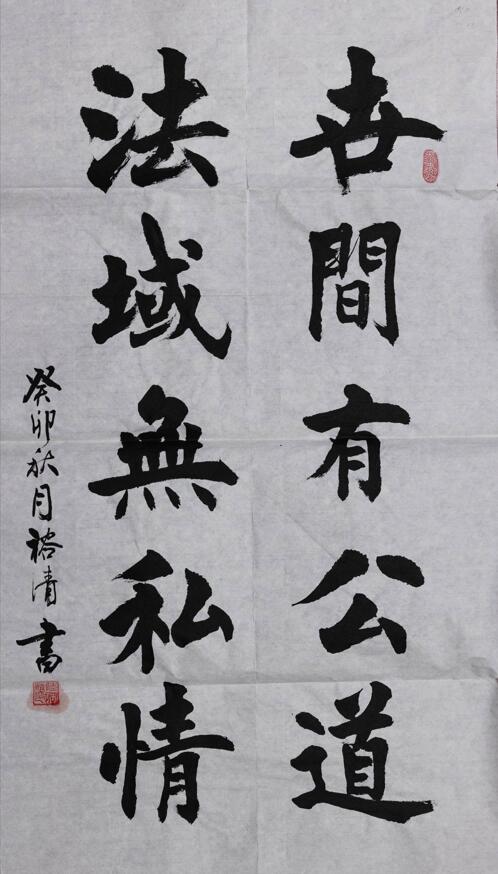 世間有公道
法域無私情
癸卯秋月裕清書